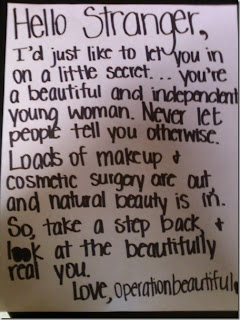 Hello Stranger,
I'd just like to let you in
on a little secret... you're
a beautiful and independent
young woman. Never let
people tell you otherwise.
Loads of makeup &
cosmetic surgery are out,
and natural beauty is in.
So, take a step back &
look at the beautifully
real you.
Love, operationbeautiful